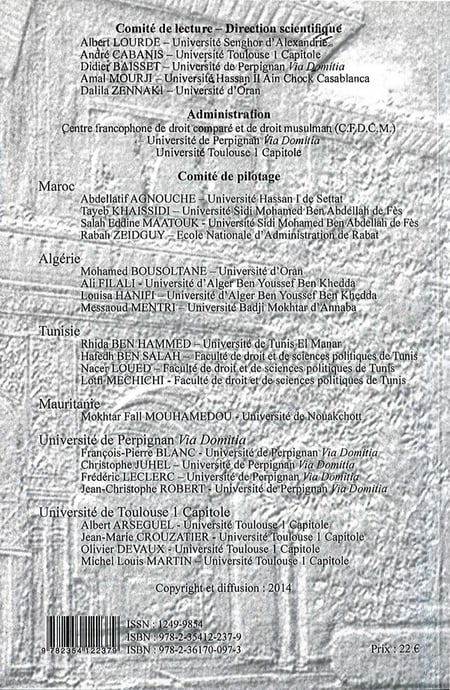 Comité de lecture – Direction scientifique
Albert LOURDE – Université Senghor d'Alexandrie
André CABANIS – Université Toulouse 1 Capitole
Didier BAISSET – Université de Perpignan Via Domitia
Amal MOURJI – Université Hassan II Ain Chock Casablanca
Dalila ZENNAKI – Université d'Oran
Administration
Centre francophone de droit comparé et de droit musulman (C.F.D.C.M.)
Université de Perpignan Via Domitia
Université Toulouse 1 Capitole
Comité de pilotage
Maroc
Abdellatif AGNOUCHE – Université Hassan I de Settat
Tayeb KHAISSIDI – Université Sidi Mohamed Ben Abdellah de Fès
Salah Eddine MAATOUK - Université Sidi Mohamed Ben Abdellah de Fès
Rabah ZEIDGUY – Ecole Nationale d'Administration de Rabat
Algérie
Mohamed BOUSOLTANE – Université d'Oran
Ali FILALI - Université d'Alger Ben Youssef Ben Khedda
Louisa HANIFI – Université d'Alger Ben Youssef Ben Khedda
Messaoud MENTRI – Université Badji Mokhtar d'Annaba
Tunisie
Rhida BEN HAMMED – Université de Tunis El Manar
Hafedh BEN SALAH – Faculté de droit et de sciences politiques de Tunis
Nacer LOUED – Faculté de droit et de sciences politiques de Tunis
Lotfi MECHICHI - Faculté de droit et de sciences politiques de Tunis
Mauritanie
Mokhtar Fall MOUHAMEDOU - Université de Nouakchott
Université de Perpignan Via Domitia
François-Pierre BLANC - Université de Perpignan Via Domitia
Christophe JUHEL – Université de Perpignan Via Domitia
Frédéric LECLERC – Université de Perpignan Via Domitia
Jean-Christophe ROBERT - Université de Perpignan Via Domitia
Université de Toulouse 1 Capitole
Albert ARSEGUEL - Université Toulouse 1 Capitole
Jean-Marie CROUZATIER - Université Toulouse 1 Capitole
Olivier DEVAUX - Université Toulouse 1 Capitole
Michel Louis MARTIN – Université Toulouse 1 Capitole
Copyright et diffusion : 2014
ISSN : 1249-9854
ISBN : 978-2-35412-237-9
ISBN : 978-2-36170-097-3
9 782354 122379
Prix : 22 €